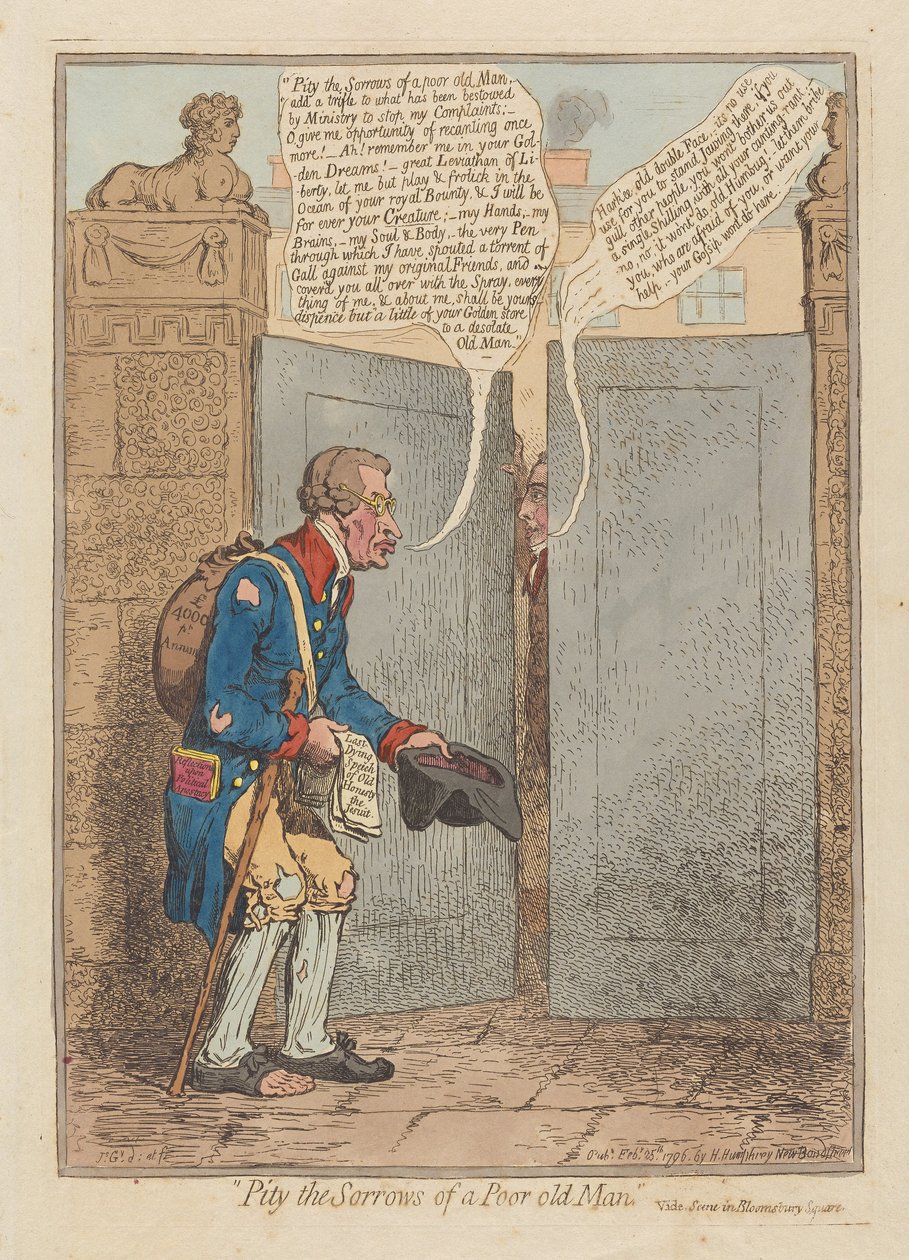 "Pity the Sorrows of a poor old Man,
add a trifle to what has been bestowed
by Ministry to stop my Complaints;–
O, give me opportunity of recanting once
more!–Ah! remember me in your Gol
-den Dreams!–great Leviathan of Li-
berty, let me but play & frolick in the
Ocean of your royal Bounty, & I will be
for ever your Creature;–my Hands,–my
Brains,–my Soul & Body,–the very Pen
through which I have spouted a torrent of
Gall against my original Friends, and
cover'd you all over with the Spray, every
thing of me, & about me, shall be yours
dispence but a little of your Golden store
to a desolate
Old Man."
Harkee, old double Face,–its no use
use for you to stand Jawing there, if you
gull other people, you wont bother us out
a single Shilling, with all your canting rant.–
no, no, it wont do, old Humbug!–let them bribe
you, who are afraid of you, or want your
help,–your Gossip wont do here.
£
4000
pr
Annum
Reflections
upon
Political
Apostacy
Last
Dying
Speech
of Old
Honesty
the
Jesuit.
Js. Gy. d: et ft.
Pubd. Feby. 25th. 1796. by H. Humphrey New Bond Street
"Pity the Sorrows of a Poor old Man"
Vide. Scene in Bloomsbury Square.